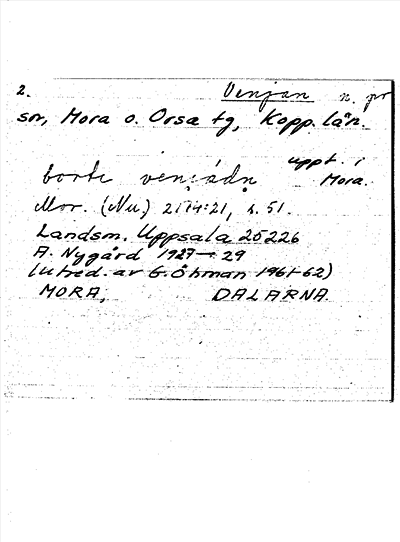 2. Venjan n. pr
sn, Mora o. Orsa tg, Kopp. län.
uppt. i
borte ven:ádn Mora.
Mor. (Nu,) 2174:21, s. 51.
Landsm. Uppsala 25226
A. Nygård 1927–29
(utred. av G. Öhman 1961-62)
MORA, DALARNA.